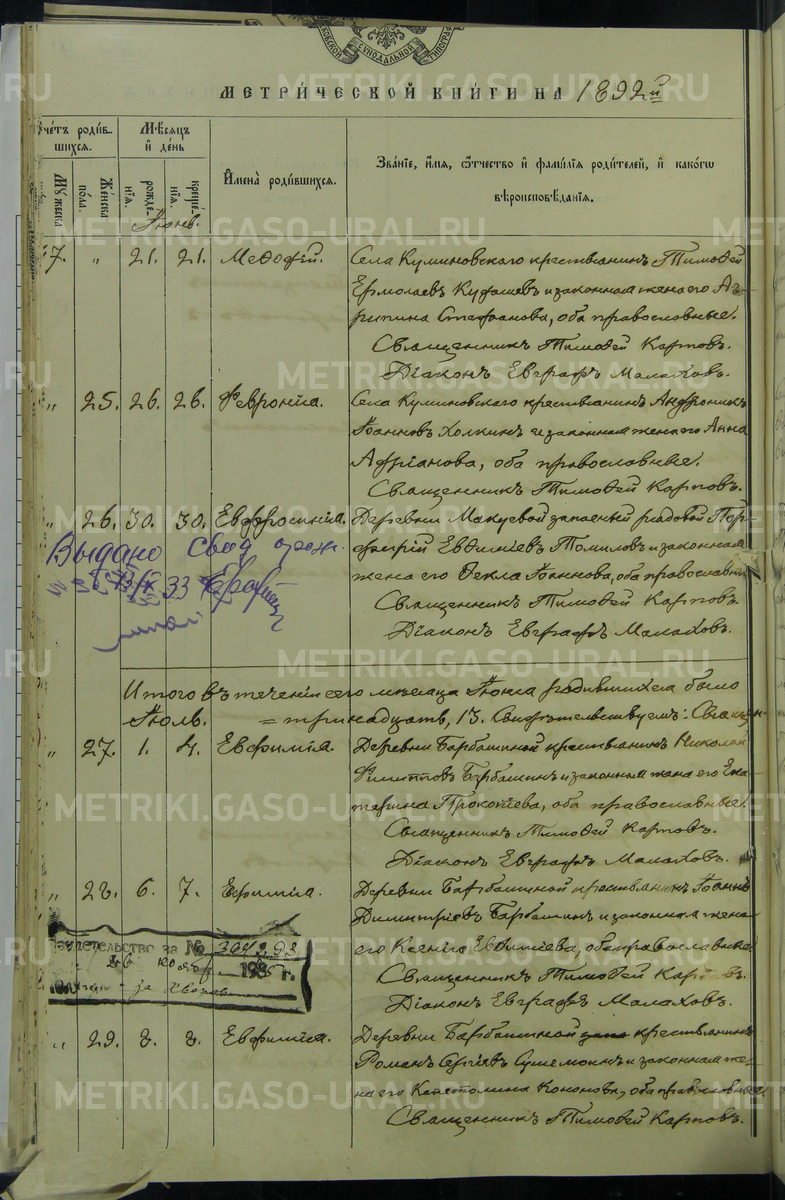 СѴНОДАЛЬНОЙ
МЕТРИ́ЧЕСКОЙ КНИ́ГИ НА 1892й
Счетъ роди́вшихся.
Му́жеска пола.
Же́нска
Мѣ́сяцъ и́ де́нь
рожде́нїѧ.
креще́нїѧ.
И҆мена̀ роди́вшихся.
Зва́нїе, и҆́мѧ, ѻ҆́тчество и҆ фами́лїѧ роди́телей, и҆ како́гѡ
вѣроисповѣ́данїѧ.
Іюнь.
7. " 21. 21. Меѳодій. Села Кулиновскаго крестьянинъ Тимоѳей
Ермолаевъ Кудашевъ и законная жена его Аг-
рипина Стефанова, оба православные.
Священникъ Тимоѳей Карповъ.
Діаконъ Евграфъ Малаховъ.
" 25. 26. 26. Февронія. Села Кулиновскаго крестьянинъ Андроникъ
Іоанновъ Холкинъ и законная жена его Анна
Адріанова, оба православные.
Священникъ Тимоѳей Карповъ.
" 26. 30. 30. Евфросинія. Деревни Макуевой запасный рядовой Пор-
фирій Евѳиміевъ Томиловъ и законная
жена его Ѳекла Іоаннова, оба православные
Выдано свид о рож.
33
Священникъ Тимоѳей Карповъ.
Діаконъ Евграфъ Малаховъ.
Итого въ теченіи сего мѣсяца Іюня родившихся было
=тринадцать, 13. Свидѣтельствуемъ: Священ-
Іюль.
" 27. 1. 4. Евфимія. Деревни Барбашиной крестьянинъ Николай
Филипповъ Барбашинъ и законная жена его Ека-
терина Прокопіева, оба православные.
Священникъ Тимоѳей Карповъ.
Діаконъ Евграфъ Малаховъ.
" 28. 6. 7. Евфимія. Деревни Барбашиной крестьянинъ Іоаннъ
Димитріевъ Барбашинъ и законная жена
его Ксенія Евѳиміева, оба православные
Свидетельство за № 304293
193 г.
Священникъ Тимоѳей Карповъ.
Діаконъ Евграфъ Малаховъ.
" 29. 8. 8. Евфимія. Деревни Барбашиной крестьянинъ
Романъ Сергіевъ и законная же-
на его Капетолина Кононова, оба православные.
Священникъ Тимоѳей Карповъ.
METRIKI.GASO-URAL.RU